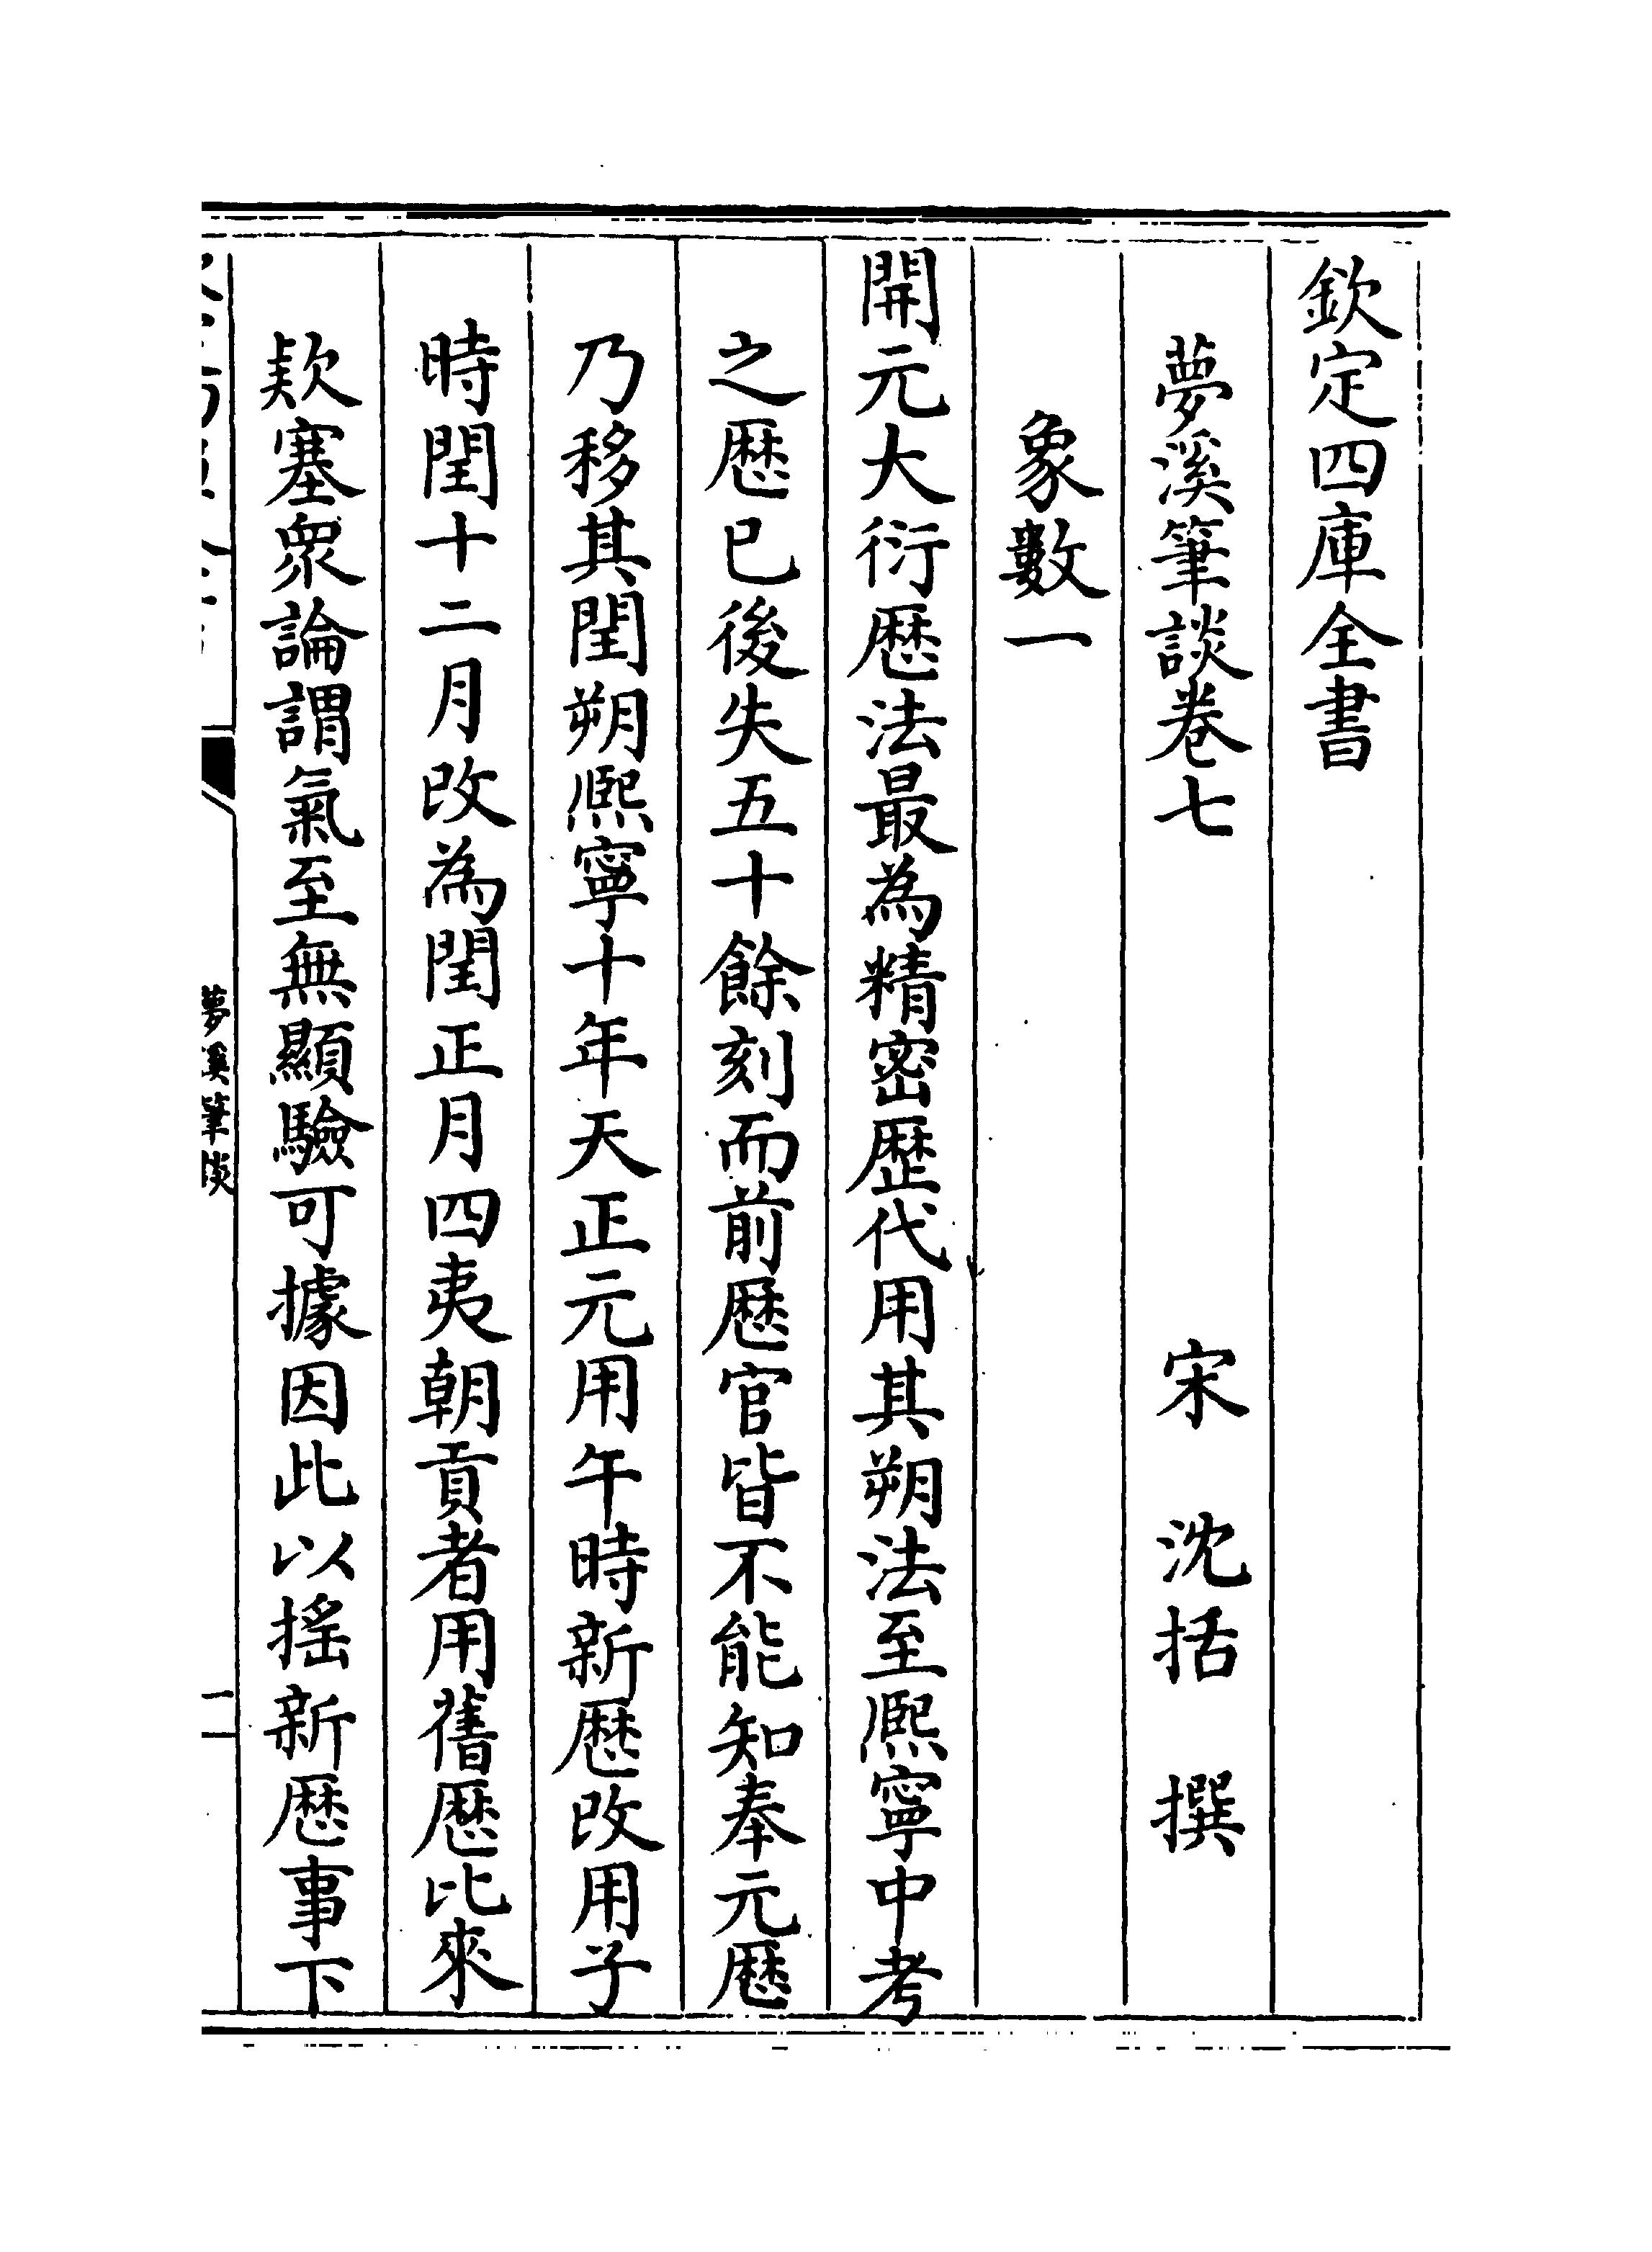 欽定四庫全書
夢溪筆談卷七 宋 沈括 撰
象數一
開元大衍厯法最為精密歴代用其朔法至熙寧中考
之厯已後失五十餘刻而前厯官皆不能知奉元厯
乃移其閏朔熙寧十年天正元用午時新厯改用子
時閏十二月改為閏正月四夷朝貢者用舊厯比來
欵塞衆論謂氣至無顯驗可據因此以揺新厯事下
夢溪筆談